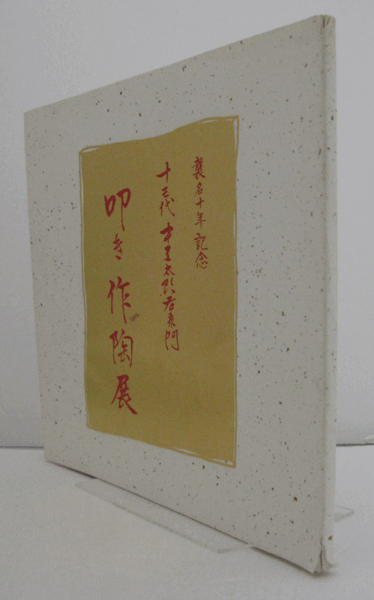 襲名十年記念
十三代 中里太郎右衛門
叩き作陶展